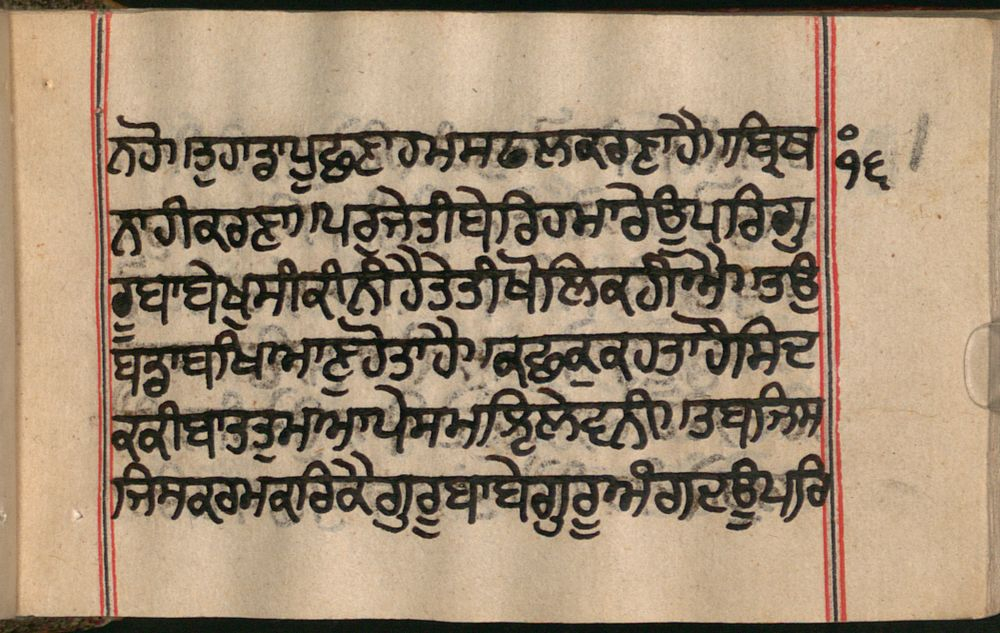 ਨਹੋ॥ਤੁਹਾਡਾਪੁਛਣਾਹਮਸਫਲਕਰਣਾਹੈ॥ਬਿ੍ਥ
੧੬
ਨਾਹੀਕਰਣਾ॥ਪਰੁਜੇਤੀਬੇਰਿਹਮਾਰੇਊਪਰਿਗੁ
ਰੂਬਾਬੇਖੁਸੀਕੀਨੀਹੈਤੇਤੀਖੋਲਿਕਹੀਐ॥ਤਉ
ਬਡਾਬਖਿਆਣੁਹੋਤਾਹੈ॥ਕਛੁਕੁਕਹਤਾਹੈਸਿਦ
ਕਕੀਬਾਤਤੁਮਆਪੇਸਮਝਿਲੇਵਨੀ॥ਤਬਜਿਸ
ਜਿਸਕਰਮਕਰਿਕੈਗੁਰੂਬਾਬੇਗੁਰੂਅੰਗਦਊਪਰਿ